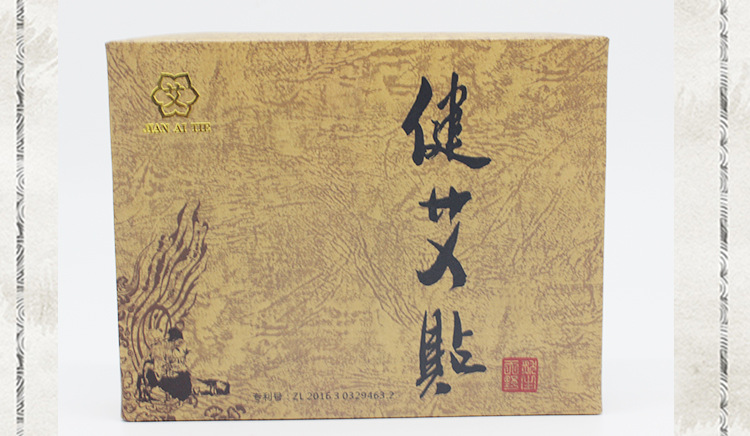 艾
JIAN AI TIE
健艾貼
专利号：ZL 2016 3 0329463.2